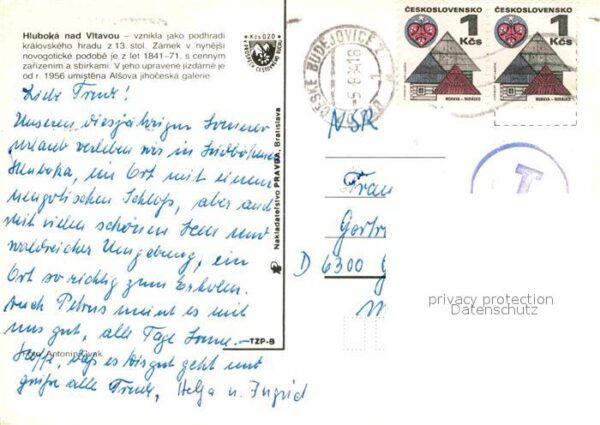 Hluboká nad Vltavou – vznikla jako podhradí
královského hradu z 13. stol. Zámek v nynější
novogotické podobě je z let 1841–71, s cenným
zařízením a sbírkami. V jeho upravené jízdárně je
od r. 1956 umístěna Alšova jihočeská galerie
Kčs 0,20
Liebe Trude!
Unseren diesjährigen Sommer
urlaub verleben wir in Südböhmen
Hluboka, ein Ort mit einem
neugotischen Schloß, aber auch
mit vielen schönen Seen und
waldreicher Umgebung, ein
Ort so richtig zum Erholen.
Auch Petrus meint es mit
uns gut, alle Tage Sonne.–
Hoffe, daß es Dir gut geht und
grüße alle Freunde, Helga u. Ingrid
Foto Antonín
TZP-8
Nakladatelství PRAVDA, Bratislava
ČESKÉ BUDĚJOVICE 2
ČESKOSLOVENSKO
1
Kčs
MORAVA - VALAŠSKO
ČESKOSLOVENSKO
1
Kčs
MORAVA - VALAŠSKO
T
NSR
D 6300
privacy protection
Datenschutz